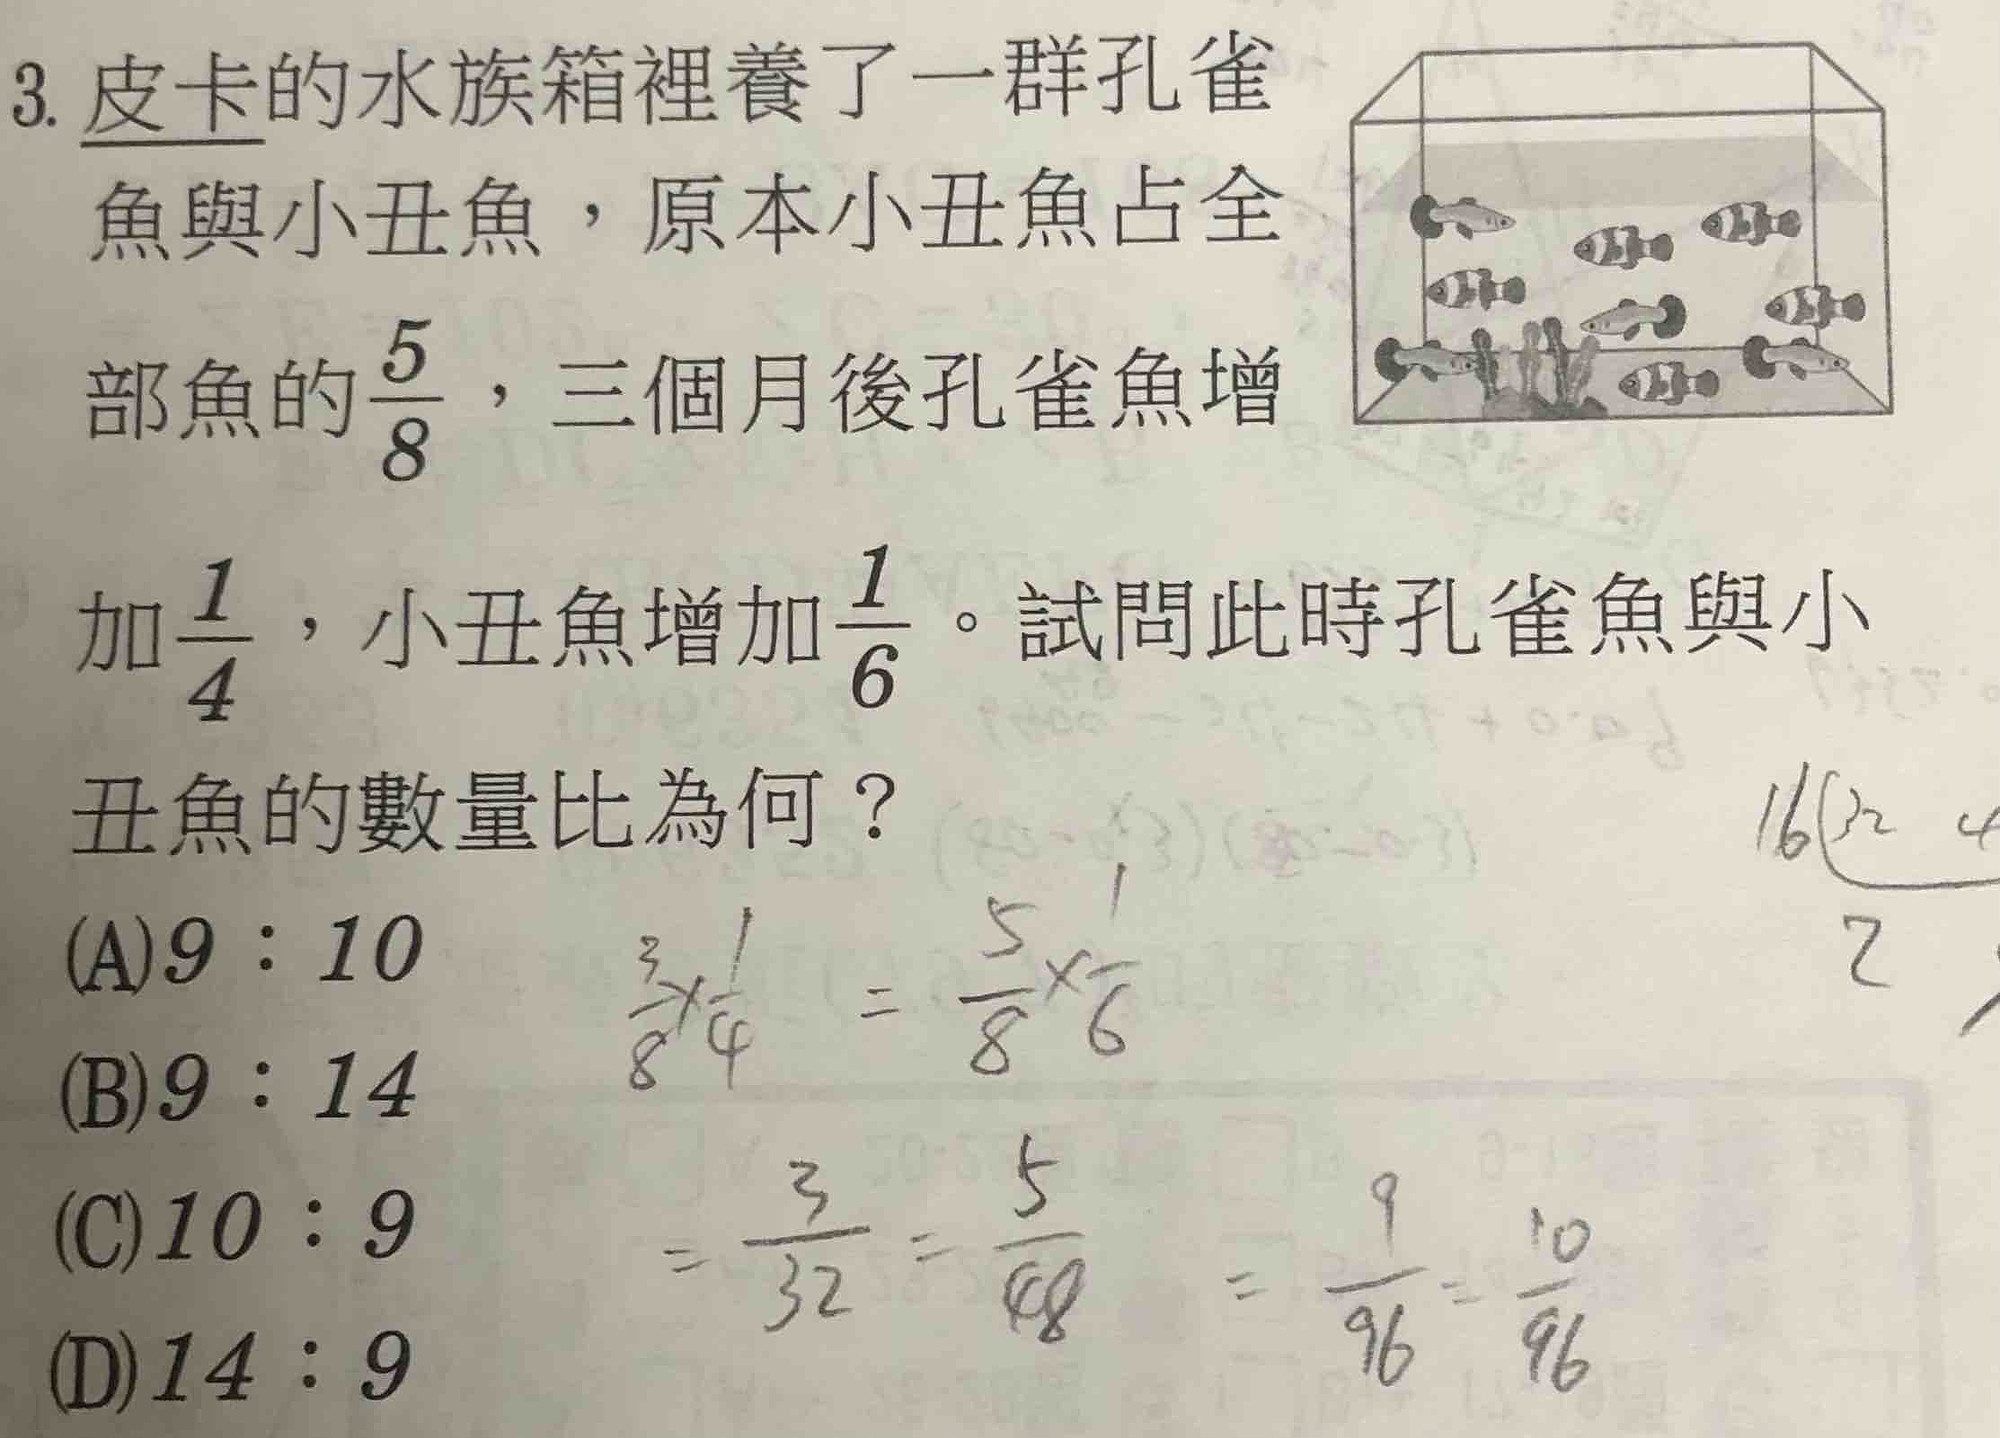 3. 皮卡的水族箱裡養了一群孔雀
魚與小丑魚,原本小丑魚占全
部魚的5/8,三個月後孔雀魚增
加1/4,小丑魚增加1/6。試問此時孔雀魚與小
丑魚的數量比為何?
16(32 4
2
(A)9:10
3/8×1/4 = 5/8×1/6
(B)9:14
(C)10:9
= 3/32 = 5/48 = 9/96 = 10/96
(D)14:9